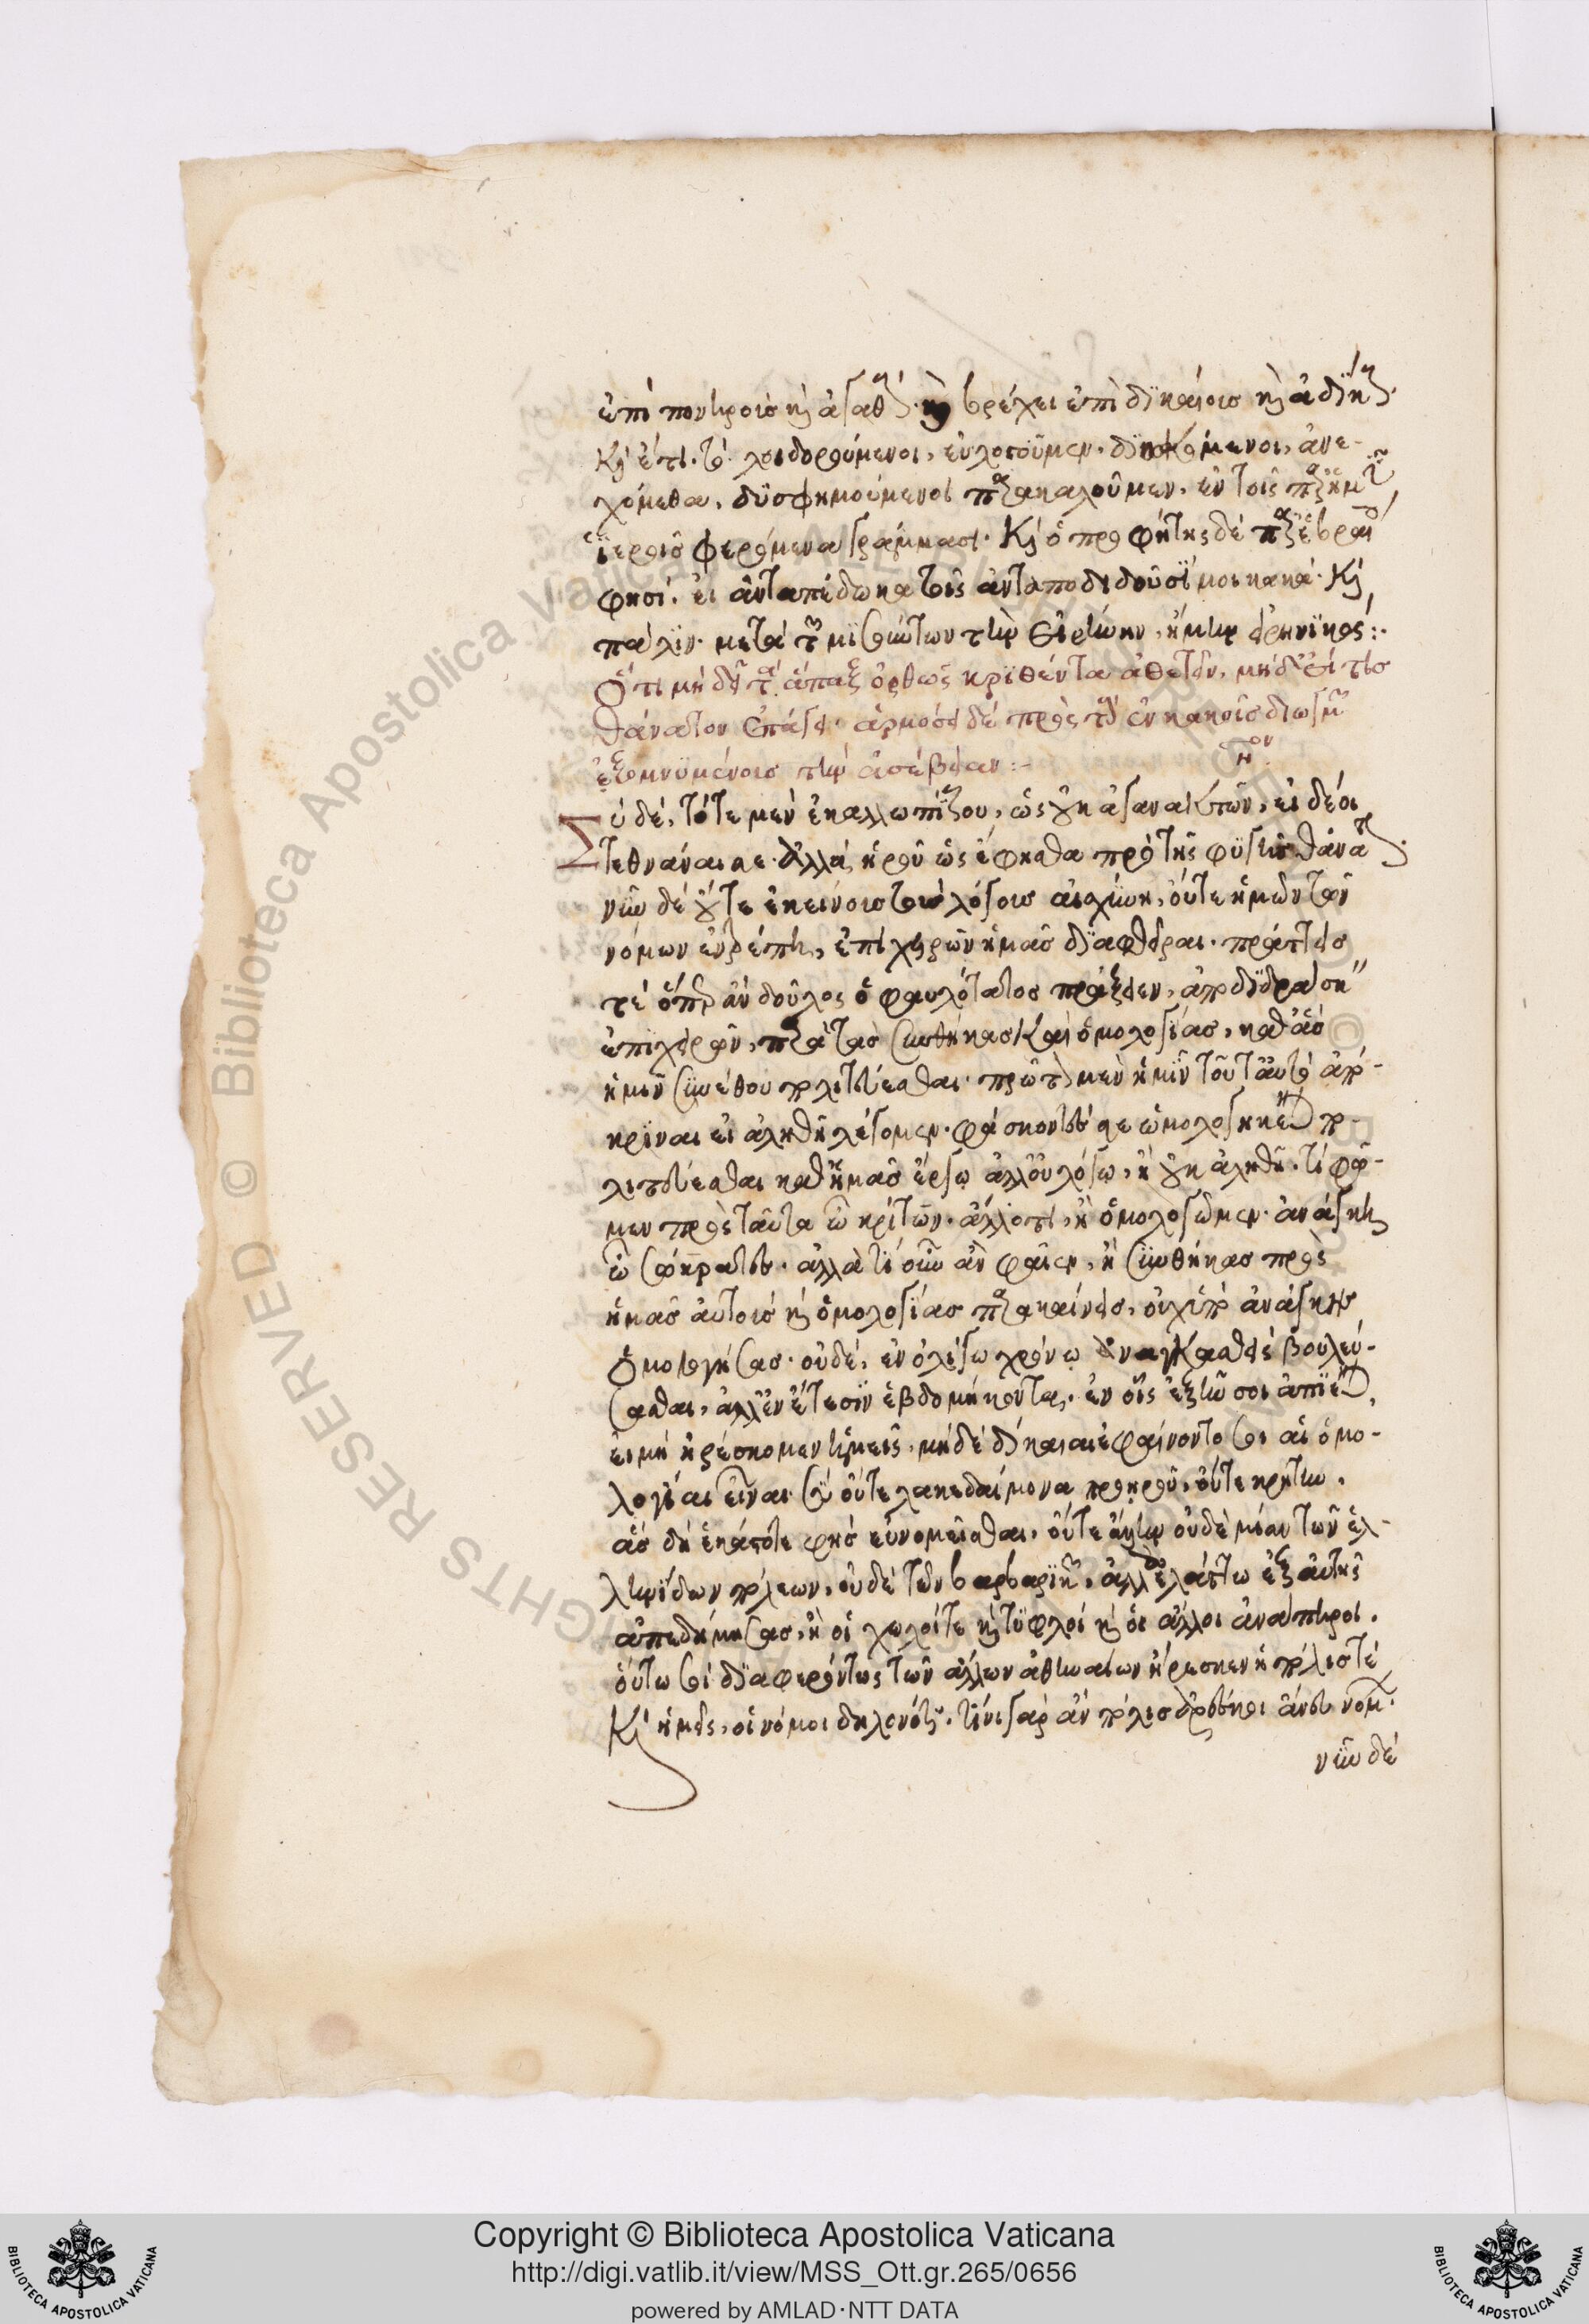 ἐπὶ πονηροὺς καὶ ἀγαθούς. καὶ βρέχει ἐπὶ δικαίοις καὶ ἀδίκους.
Καὶ ἔτι τὸ λοιδορούμενοι, εὐλογοῦμεν. διωκόμενοι, ἀνε-
χόμεθα. δυσφημούμενοι παρακαλοῦμεν. ἐν τοῖς παρ' ἡμῖν
ἱεροῖς φερόμενα γράμμασι. Καὶ ὁ προφήτης δὲ παρ' ἑβραίοις
φησί. εἰ ἀνταπέδωκα τοῖς ἀνταποδιδοῦσί μοι κακά. Καὶ
πάλιν. μετὰ τῶν μισούντων τὴν εἰρήνην, ἤμην εἰρηνικός:.
Ὅτι μὴ δεῖ τὰ ἅπαξ ὀρθῶς κριθέντα ἀθετεῖν, μηδ' εἴ τις
θάνατον ἐπάγει. ἁρμόσει δὲ πρὸς τοὺς ἐν κακοῖς διωγμῶν
ἐξομνυμένοις τὴν ἀσέβειαν:-
Σὺ δέ, τότε μὲν ἐκαλλωπίζου, ὡς οὐκ ἀγανακτῶν, εἰ δέοι
τεθνάναι σε. ἀλλὰ ᾑροῦ ὡς ἔφησθα πρὸ τῆς φυγῆς θάνατον.
νῦν δὲ οὔτε ἐκείνους τοὺς λόγους αἰσχύνῃ, οὔτε ἡμῶν τῶν
νόμων ἐντρέπῃ, ἐπιχειρῶν ἡμᾶς διαφθεῖραι. πράττεις
τὲ ἅπερ ἂν δοῦλος ὁ φαυλότατος πράξειεν, ἀποδιδράσκειν
ἐπιχειρῶν, παρὰ τὰς συνθήκας καὶ ὁμολογίας, καθ' ἃς
ἡμῖν συνέθου πολιτεύεσθαι. πρῶτον μὲν ἡμῖν τοῦτ' αὐτὸ ἀπό-
κριναι εἰ ἀληθῆ λέγομεν. φάσκοντές σε ὡμολογηκέναι πο-
λιτεύεσθαι καθ' ἡμᾶς ἔργῳ ἀλλ' οὐ λόγῳ, ἢ οὐκ ἀληθῆ. τί φῶ-
μεν πρὸς ταῦτα ὦ κρίτων. ἄλλοτι, ἢ ὁμολογῶμεν. ἀνάγκη
ὦ σώκρατες. ἀλλὰ τί οὖν ἂν φαῖεν, ἢ συνθήκας πρὸς
ἡμᾶς αὐτοὺς καὶ ὁμολογίας παραβαίνεις, οὐχ ὑπὸ ἀνάγκης
ὁμολογήσας. οὐδέ, ἐν ὀλίγῳ χρόνῳ ἀναγκασθεὶς βουλεύ-
σασθαι, ἀλλ' ἐν ἔτεσιν ἑβδομήκοντα. ἐν οἷς ἐξῆν σοι ἀπιέναι,
εἰ μὴ ἠρέσκομεν ἡμεῖς. μηδὲ δίκαιαι ἐφαίνοντό σοι αἱ ὁμο-
λογίαι εἶναι. σὺ οὔτε λακεδαίμονα προῃροῦ, οὔτε κρήτην.
ἃς δὴ ἑκάστοτε φῂς εὐνομεῖσθαι. οὔτε ἄλλην οὐδὲ μίαν τῶν ἑλ-
ληνίδων πόλεων, οὐδὲ τῶν βαρβαρικῶν, ἀλλ' ἐλάττω ἐξ αὐτῆς
ἀπεδήμησας, ἢ οἱ χωλοί τε καὶ τυφλοὶ καὶ οἱ ἄλλοι ἀνάπηροι.
οὕτω σοι διαφερόντως τῶν ἄλλων ἀθηναίων ἤρεσκεν ἡ πόλις τέ
Καὶ ἡμεῖς, οἱ νόμοι δηλονότι. τίνι γὰρ ἂν πόλις ἀρέσκοι ἄνευ νόμων.
νῦν δὲ
Copyright © Biblioteca Apostolica Vaticana
http://digi.vatlib.it/view/MSS_Ott.gr.265/0656
powered by AMLAD·NTT DATA